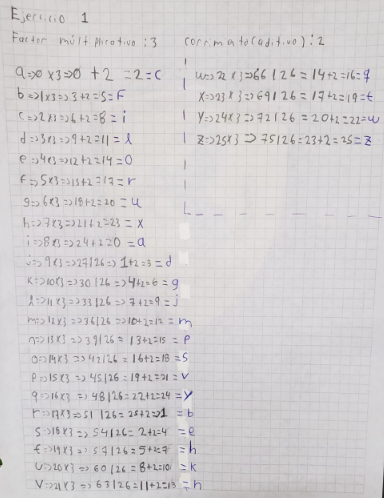 Ejercicio 1
Factor multiplicativo: 3
Corrimiento (aditivo): 2
a=>0x3=>0 + 2 = 2 = C
b=>1x3=>3+2=5=F
c=>2x3=>6+2=8=i
d=>3x3=>9+2=11=l
e=>4x3=>12+2=14=O
f=>5x3=>15+2=17=r
g=>6x3=>18+2=20=u
h=>7x3=>21+2=23=x
i=>8x3=>24+2=0=a
j=>9x3=>27/26=>1+2=3=d
k=>10x3=>30/26=>4+2=6=g
l=>11x3=>33/26=>7+2=9=j
m=>12x3=>36/26=>10+2=12=m
n=>13x3=>39/26=13+2=15=p
o=>14x3=>42/26=16+2=18=s
p=>15x3=>45/26=19+2=21=v
q=>16x3=>48/26=22+2=24=y
r=>17x3=>51/26=25+2=>1=b
s=>18x3=>54/26=2+2=4=e
t=>19x3=>57/26=5+2=7=h
u=>20x3=>60/26=8+2=10=k
v=>21x3=>63/26=11+2=13=n
w=>22x3=>66/26=14+2=16=q
x=>23x3=>69/26=17+2=19=t
y=>24x3=>72/26=20+2=22=w
z=>25x3=>75/26=23+2=25=z